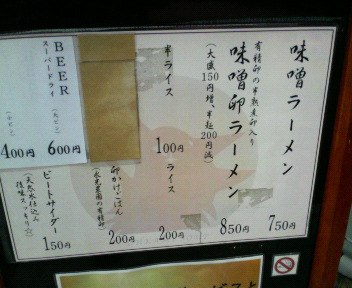 味噌ラーメン
750円
有精卵の半熟煮卵入り
味噌卵ラーメン
850円
(大盛150円増、半麺200円減)
半ライス
100円
ライス
200円
卵かけごはん
200円
BEER
スーパードライ
(大ビン)
600円
(小ビン)
400円
ビートサイダー
(天然水仕込み
後味スッキリ☆)
150円